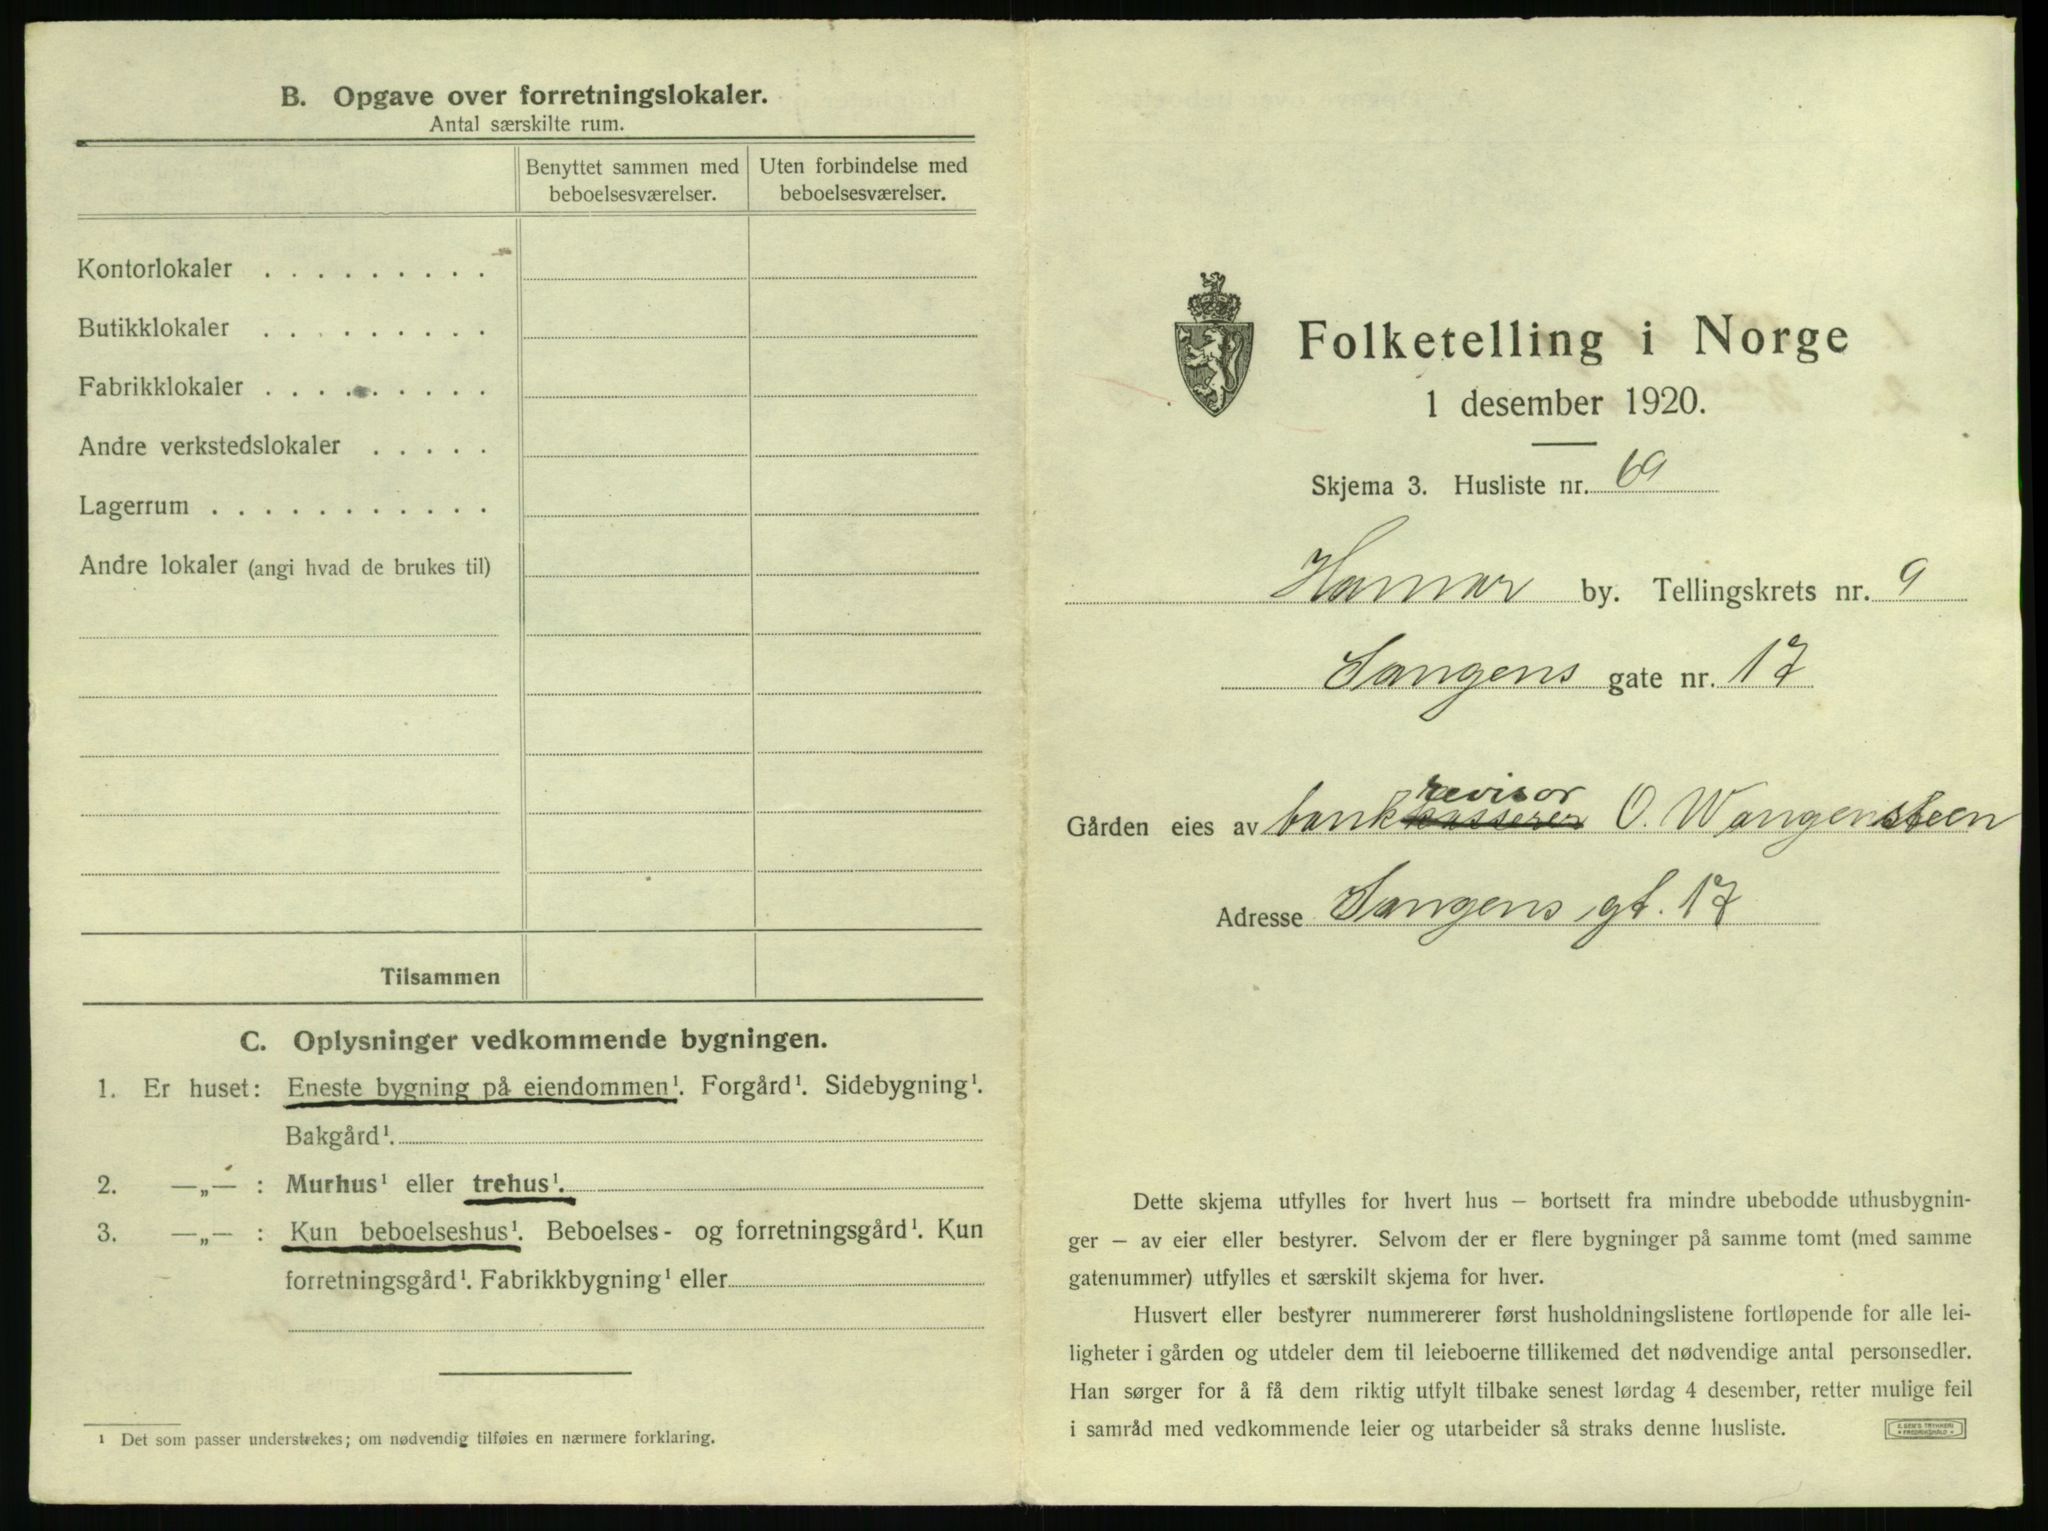 B. Opgave over forretningslokaler.
Antal særskilte rum.
Benyttet sammen med beboelsesværelser.
Uten forbindelse med beboelsesværelser.
Kontorlokaler . . . . . . . . .
Butikklokaler . . . . . . . . .
Fabrikklokaler . . . . . . . . .
Andre verkstedslokaler . . . . .
Lagerrum . . . . . . . . . . .
Andre lokaler (angi hvad de brukes til)
Tilsammen
C. Oplysninger vedkommende bygningen.
1. Er huset: Eneste bygning på eiendommen¹. Forgård¹. Sidebygning¹.
Bakgård¹.
2. —„— : Murhus¹ eller trehus¹.
3. —„— : Kun beboelseshus¹. Beboelses- og forretningsgård¹. Kun
forretningsgård¹. Fabrikkbygning¹ eller
¹ Det som passer understrekes; om nødvendig tilføies en nærmere forklaring.
Folketelling i Norge
1 desember 1920.
Skjema 3. Husliste nr. 69
Hamar by. Tellingskrets nr. 9
Vangens gate nr. 17
revisor
Gården eies av bankkasserer O. Wangensteen
Adresse Vangens gt. 17
Dette skjema utfylles for hvert hus – bortsett fra mindre ubebodde uthusbygnin-
ger – av eier eller bestyrer. Selvom der er flere bygninger på samme tomt (med samme
gatenummer) utfylles et særskilt skjema for hver.
Husvert eller bestyrer nummererer først husholdningslistene fortløpende for alle lei-
ligheter i gården og utdeler dem til leieboerne tillikemed det nødvendige antal personsedler.
Han sørger for å få dem riktig utfylt tilbake senest lørdag 4 desember, retter mulige feil
i samråd med vedkommende leier og utarbeider så straks denne husliste.